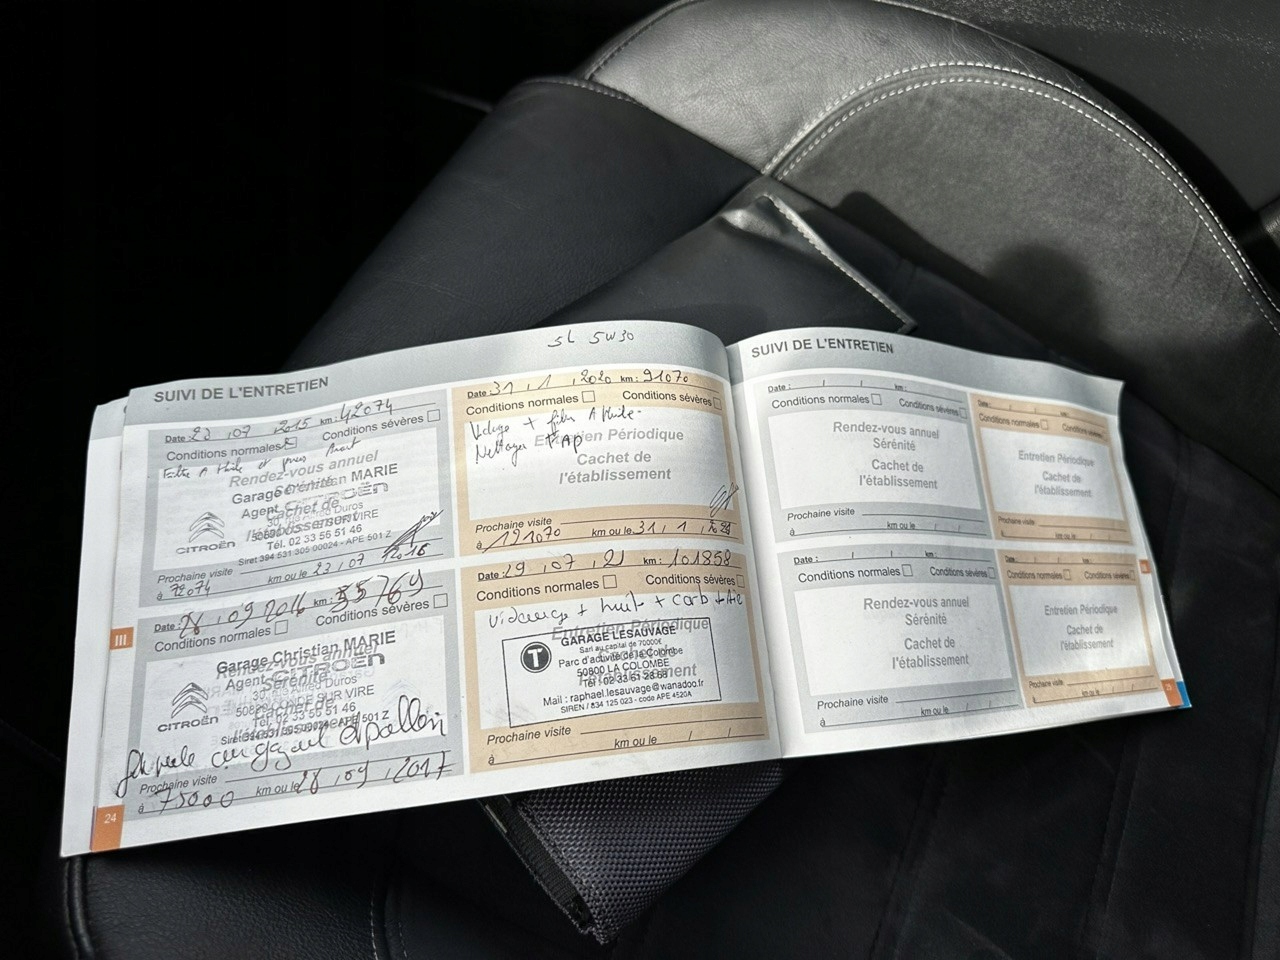 5L 5W30
SUIVI DE L'ENTRETIEN
Date : 23 , 07 , 2015 km : 42074
Conditions normales Conditions sévères
Filtre A Huile et
Rendez-vous annuel
Sérénité
Garage Christian MARIE
Agent CITROËN
Cachet de
l'établissement
30, rue Alfred Duros
SUR VIRE
Tél. 02 33 56 51 46
Siret 394 531 305 00024 - APE 501 Z
CITROËN
Prochaine visite
à 72074 km ou le 23 , 07 , 2016
Date : 28 , 09 2016 km : 55769
Conditions normales Conditions sévères
Garage Christian MARIE
Rendez-vous annuel
Agent CITROËN
Sérénité
30, rue Alfred Duros
SUR VIRE
Tél. 02 33 56 51 46
CITROËN
Prochaine visite
à 75000 km ou le 28 , 09 , 2017
24
III
Date : 31 , 1 , 2020 km : 91070
Conditions normales Conditions sévères
Vidage + filtre A Huile
Nettoyer FAP
Entretien Périodique
Cachet de
l'établissement
Prochaine visite
à 121070 km ou le 31 , 1 ,
Date : 29 , 07 , 21 km : 101858
Conditions normales Conditions sévères
vidange + huile + carb + Air
Entretien Périodique
GARAGE LESAUVAGE
Sarl au capital de 70000€
Parc d'activité de la Colombe
50800 LA COLOMBE
Tél : 02 33 61 28 68
Mail : raphael.lesauvage@wanadoo.fr
SIREN / 834 125 023 - code APE 4520A
T
Prochaine visite
à km ou le / /
SUIVI DE L'ENTRETIEN
Date : / / km :
Conditions normales Conditions sévères
Rendez-vous annuel
Sérénité
Cachet de
l'établissement
Prochaine visite
à km ou le / /
Date : / / km :
Conditions normales Conditions sévères
Rendez-vous annuel
Sérénité
Cachet de
l'établissement
Prochaine visite
à km ou le / /
Date : / / km :
Conditions normales Conditions sévères
Entretien Périodique
Cachet de
l'établissement
Prochaine visite
à km ou le / /
Date : / / km :
Conditions normales Conditions sévères
Entretien Périodique
Cachet de
l'établissement
Prochaine visite
à km ou le / /